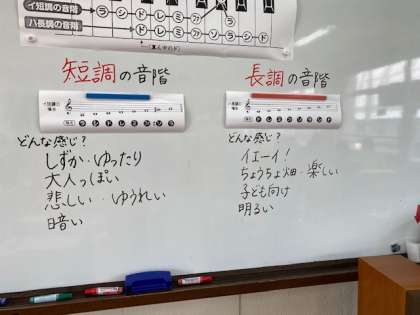 イ短調の音階
ラ シ ド レ ミ ファ ラ
ハ長調の音階
ド レ ミ ファ ソ ラ シ ド
短調の音階
長調の音階
ラ シ ド レ ミ ファ ソ ラ
ド レ ミ ファ ソ ラ シ ド
どんな感じ?
しずか・ゆったり
大人っぽい
悲しい・ゆうれい
暗い
どんな感じ?
イエーイ!
ちょうちょ畑・楽しい
子ども向け
明るい